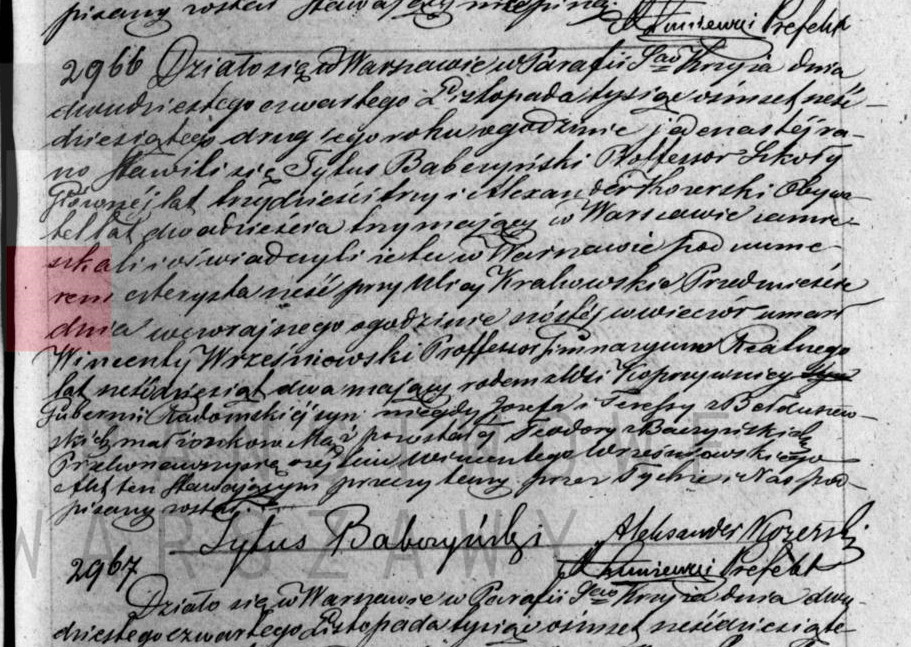 pisany został Stawającym niepiśm.
Prefekt
2966 Działo się w Warszawie w Parafii Sgo Krzyża dnia
dwudziestego czwartego Listopada tysiąc ośmset sześć-
dziesiątego drugiego roku o godzinie jedenastéj ra-
no Stawili się Tytus Babczyński Proffessor Szkoły
Głównéj lat trzydzieści trzy i Alexander Kozerski Obywa-
tel lat dwadzieścia trzy mający w Warszawie zamie-
szkali i oświadczyli iż tu w Warszawie pod nume-
rem czterysta sześć przy Ulicy Krakowskie Przedmieście
dnia wczorajszego o godzinie szóstéj w wieczór umarł
Wincenty Wrześniowski Proffessor Gimnazyum Realnego
lat sześćdziesiąt dwa mający rodem z
Gubernii Radomskiéj syn niegdy Józefa i Teressy z
małżonków po
Przekonawszy się o zejściu Wincentego Wrześniowskiego
Akt ten Stawającym przeczytany przez Tychże i Nas pod-
pisany został.
Tytus Babczyński Aleksander Kozerski
Prefekt
2967
Działo się w Warszawie w Parafii Sgo Krzyża dnia dwu-
dziestego czwartego Listopada tysiąc ośmset sześćdziesiąte-
WARSZAWY